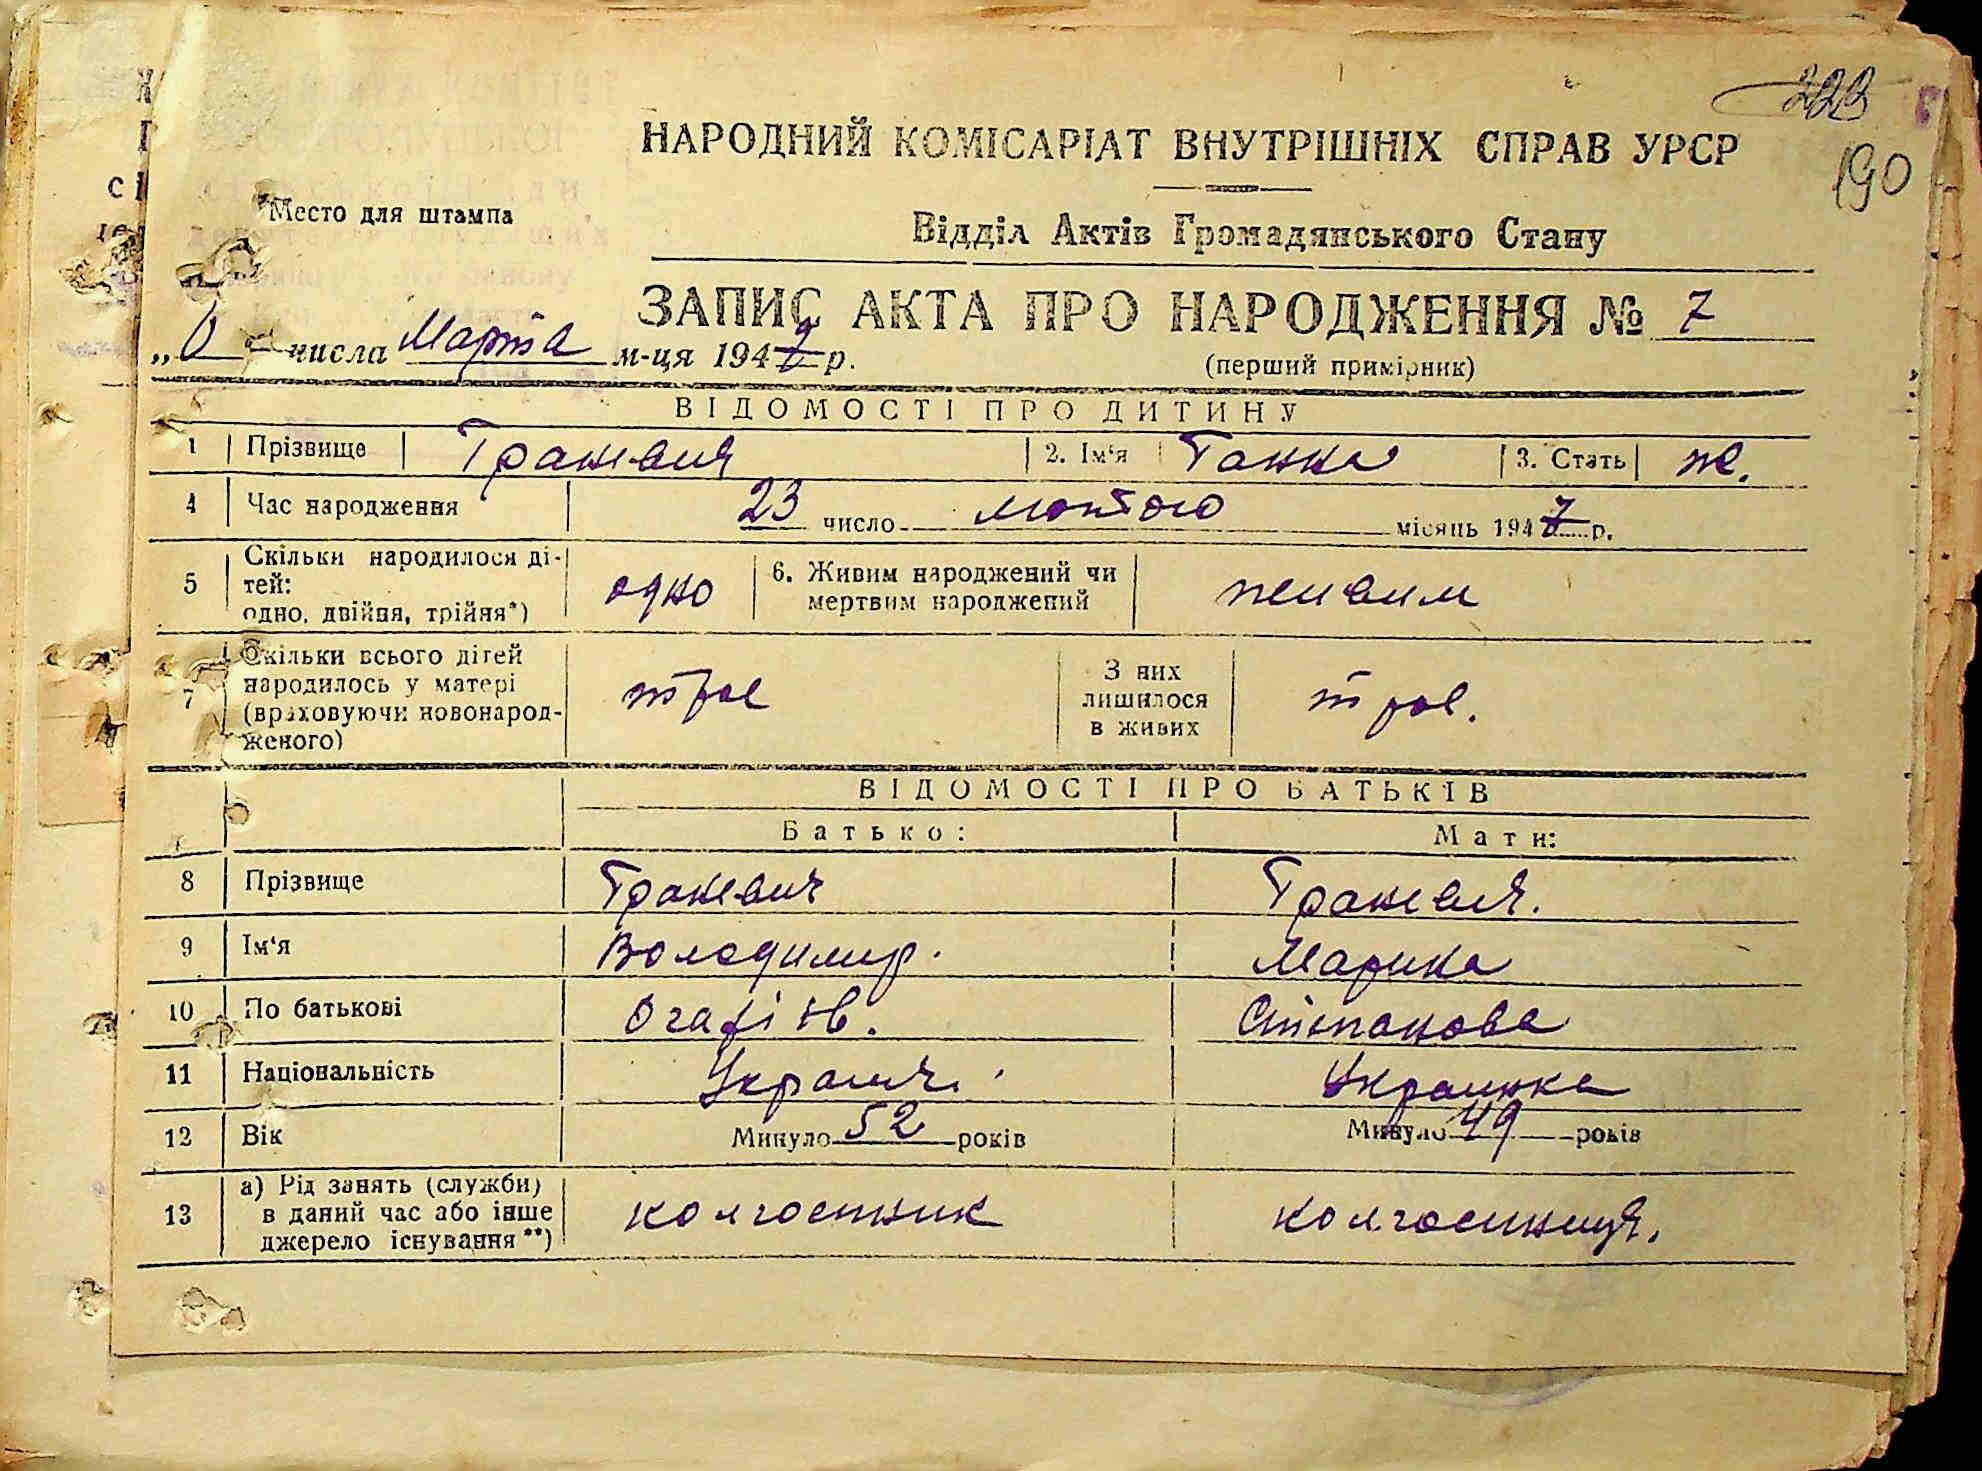 223
190
НАРОДНИЙ КОМІСАРІАТ ВНУТРІШНІХ СПРАВ УРСР
Место для штампа
Відділ Актів Громадянського Стану
ЗАПИС АКТА ПРО НАРОДЖЕННЯ № 7
числа Марта м-ця 1947 р.
(перший примірник)
ВІДОМОСТІ ПРО ДИТИНУ
1 Прізвище Траневич 2. Ім'я Ганна 3. Стать ж.
4 Час народження 23 число лютого місяць 1947 р.
5 Скільки народилося ді-
тей:
одно, двійня, трійня*) одно 6. Живим народжений чи
мертвим народжений живим
7 Скільки всього дітей
народилось у матері
(враховуючи новонарод-
женого) троє З них
лишилося
в живих троє.
ВІДОМОСТІ ПРО БАТЬКІВ
Батько: Мати:
8 Прізвище Траневич Траневич.
9 Ім'я Володимир. Марина
10 По батькові Степанова
11 Національність Українка
12 Вік Минуло 52 років Минуло 49 років
13 а) Рід занять (служби)
в даний час або інше
джерело існування**) колгоспник колгоспниця.